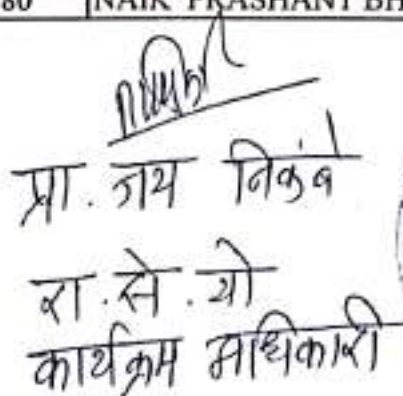 80 NAIK PRASHANT BH
प्रा. जय निकंब
रा.से.यो
कार्यक्रम अधिकारी